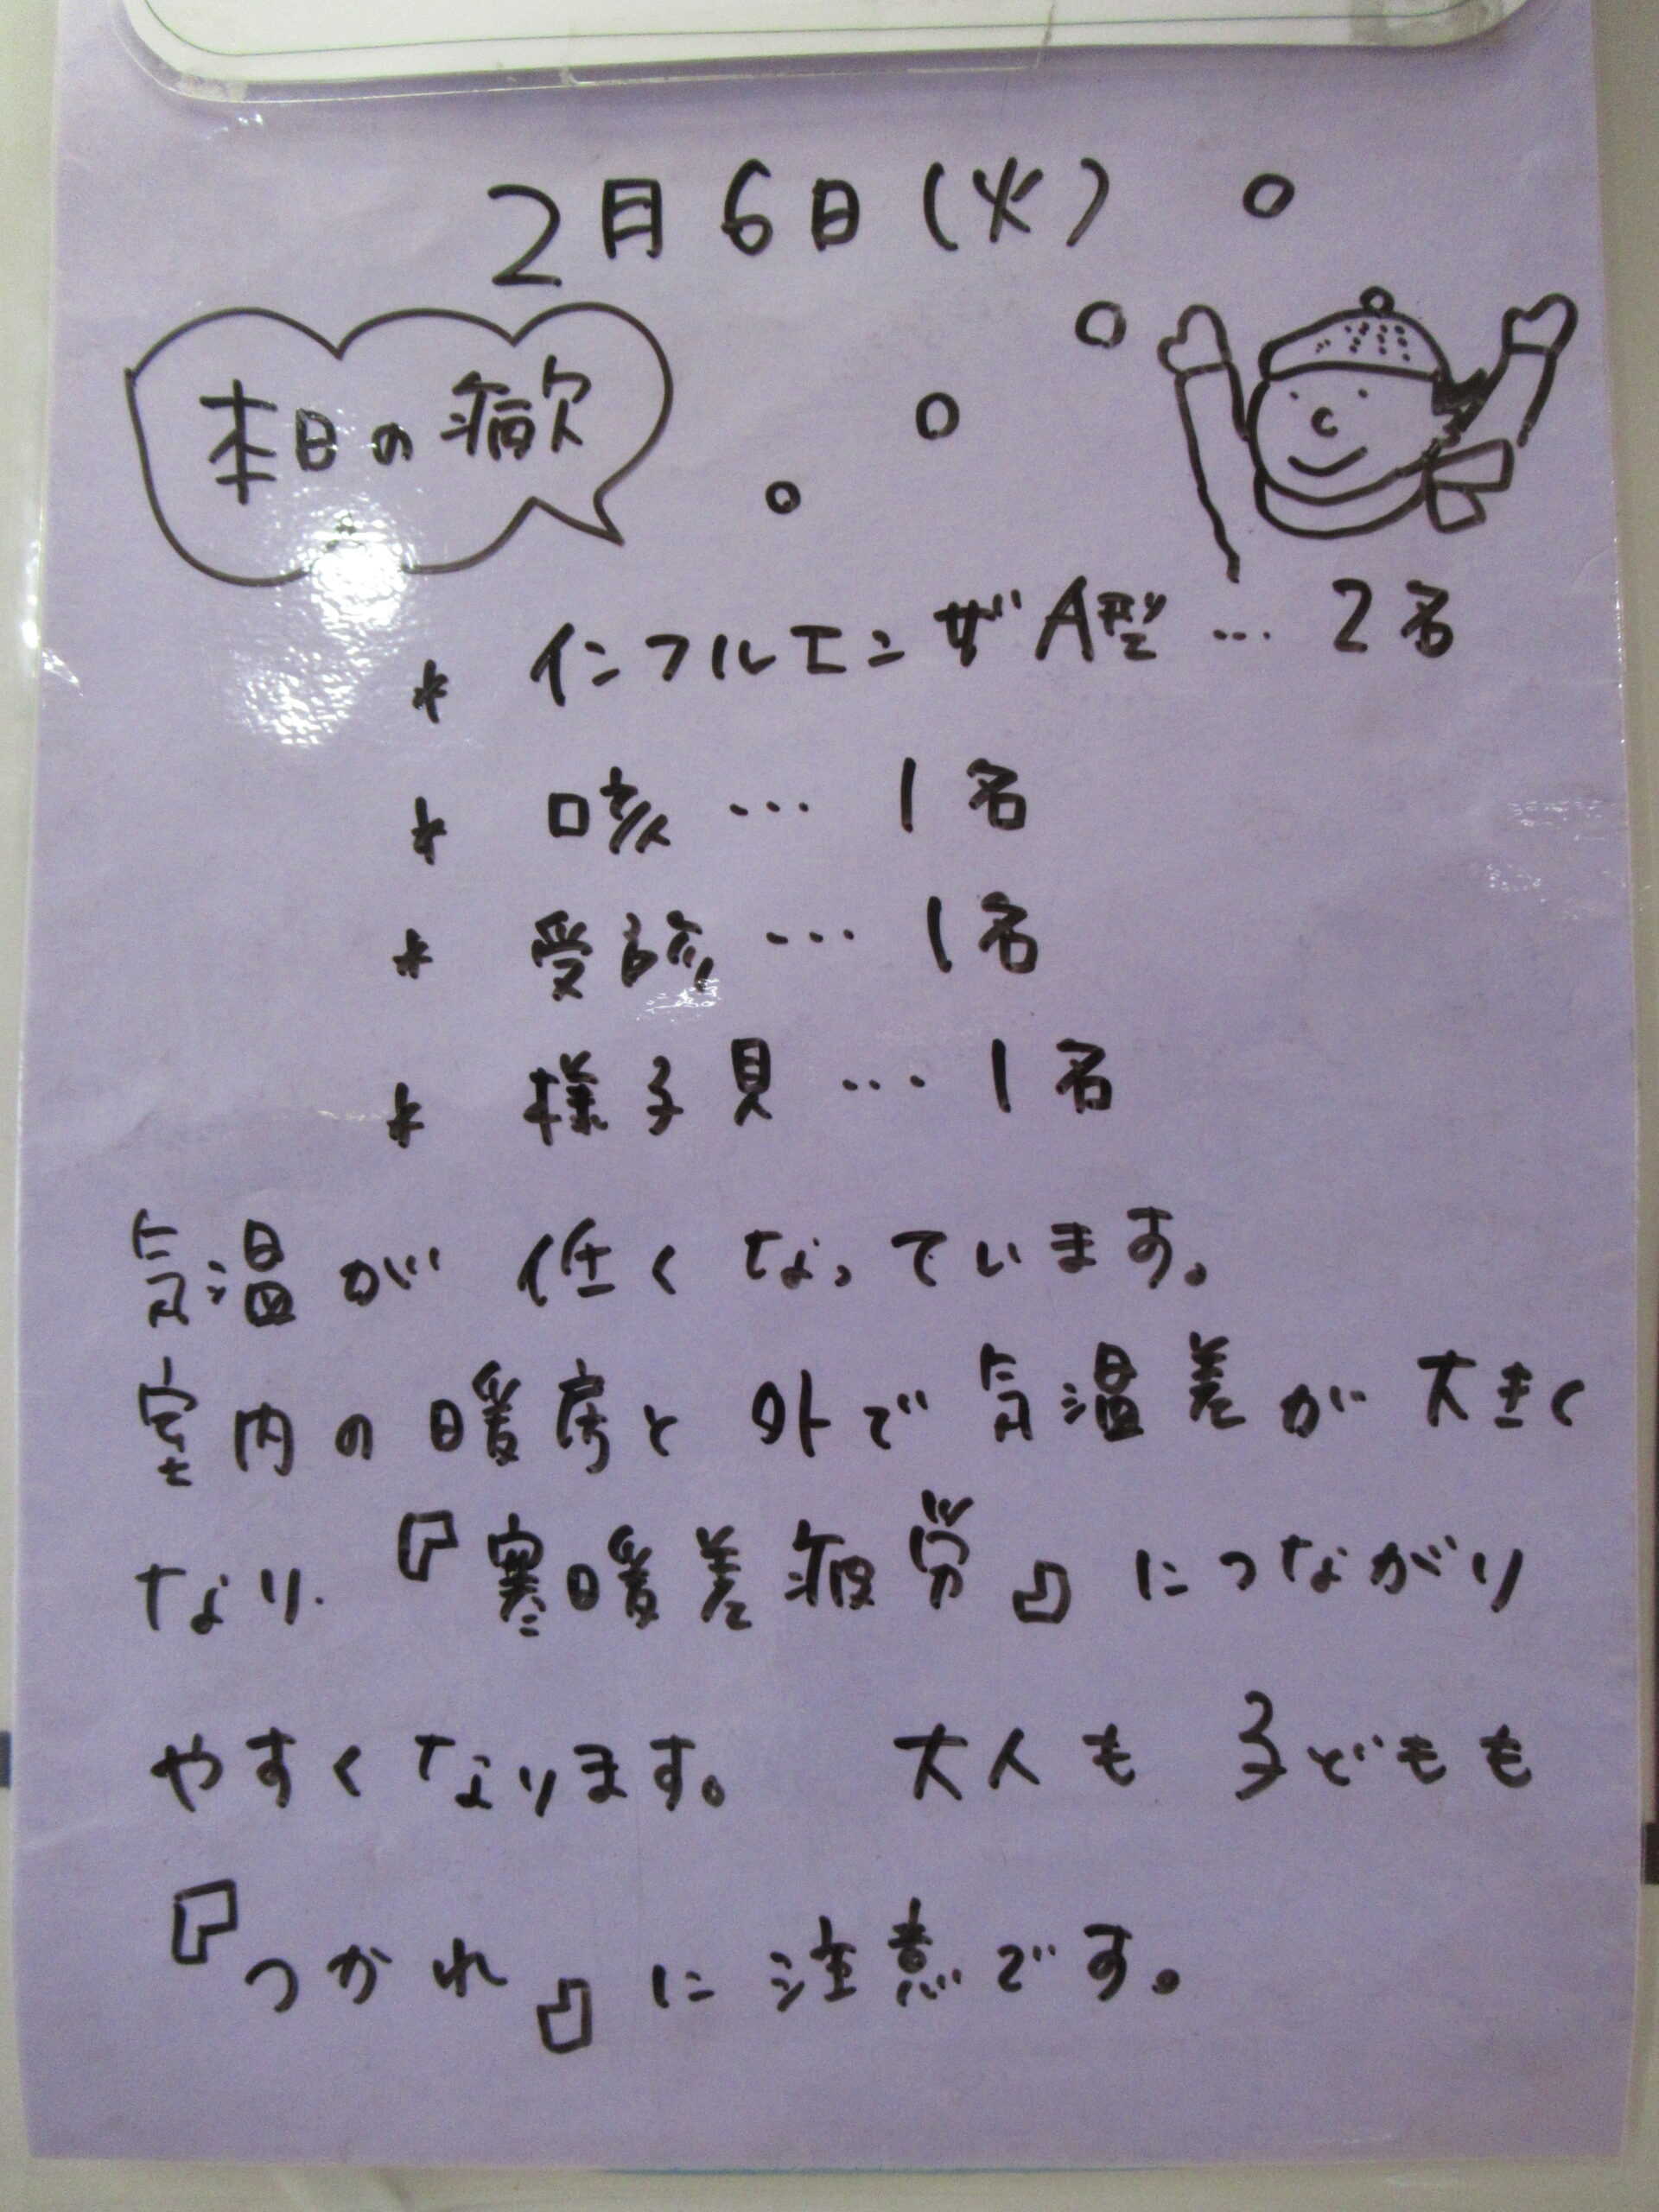 2月6日(火)
本日の病欠
* インフルエンザA型… 2名
* 咳… 1名
* 受診… 1名
* 様子見… 1名
気温が 低くなっています。
室内の暖房と外で気温差が大きく
なり、『寒暖差疲労』につながり
やすくなります。 大人も 子どもも
『つかれ』に注意です。